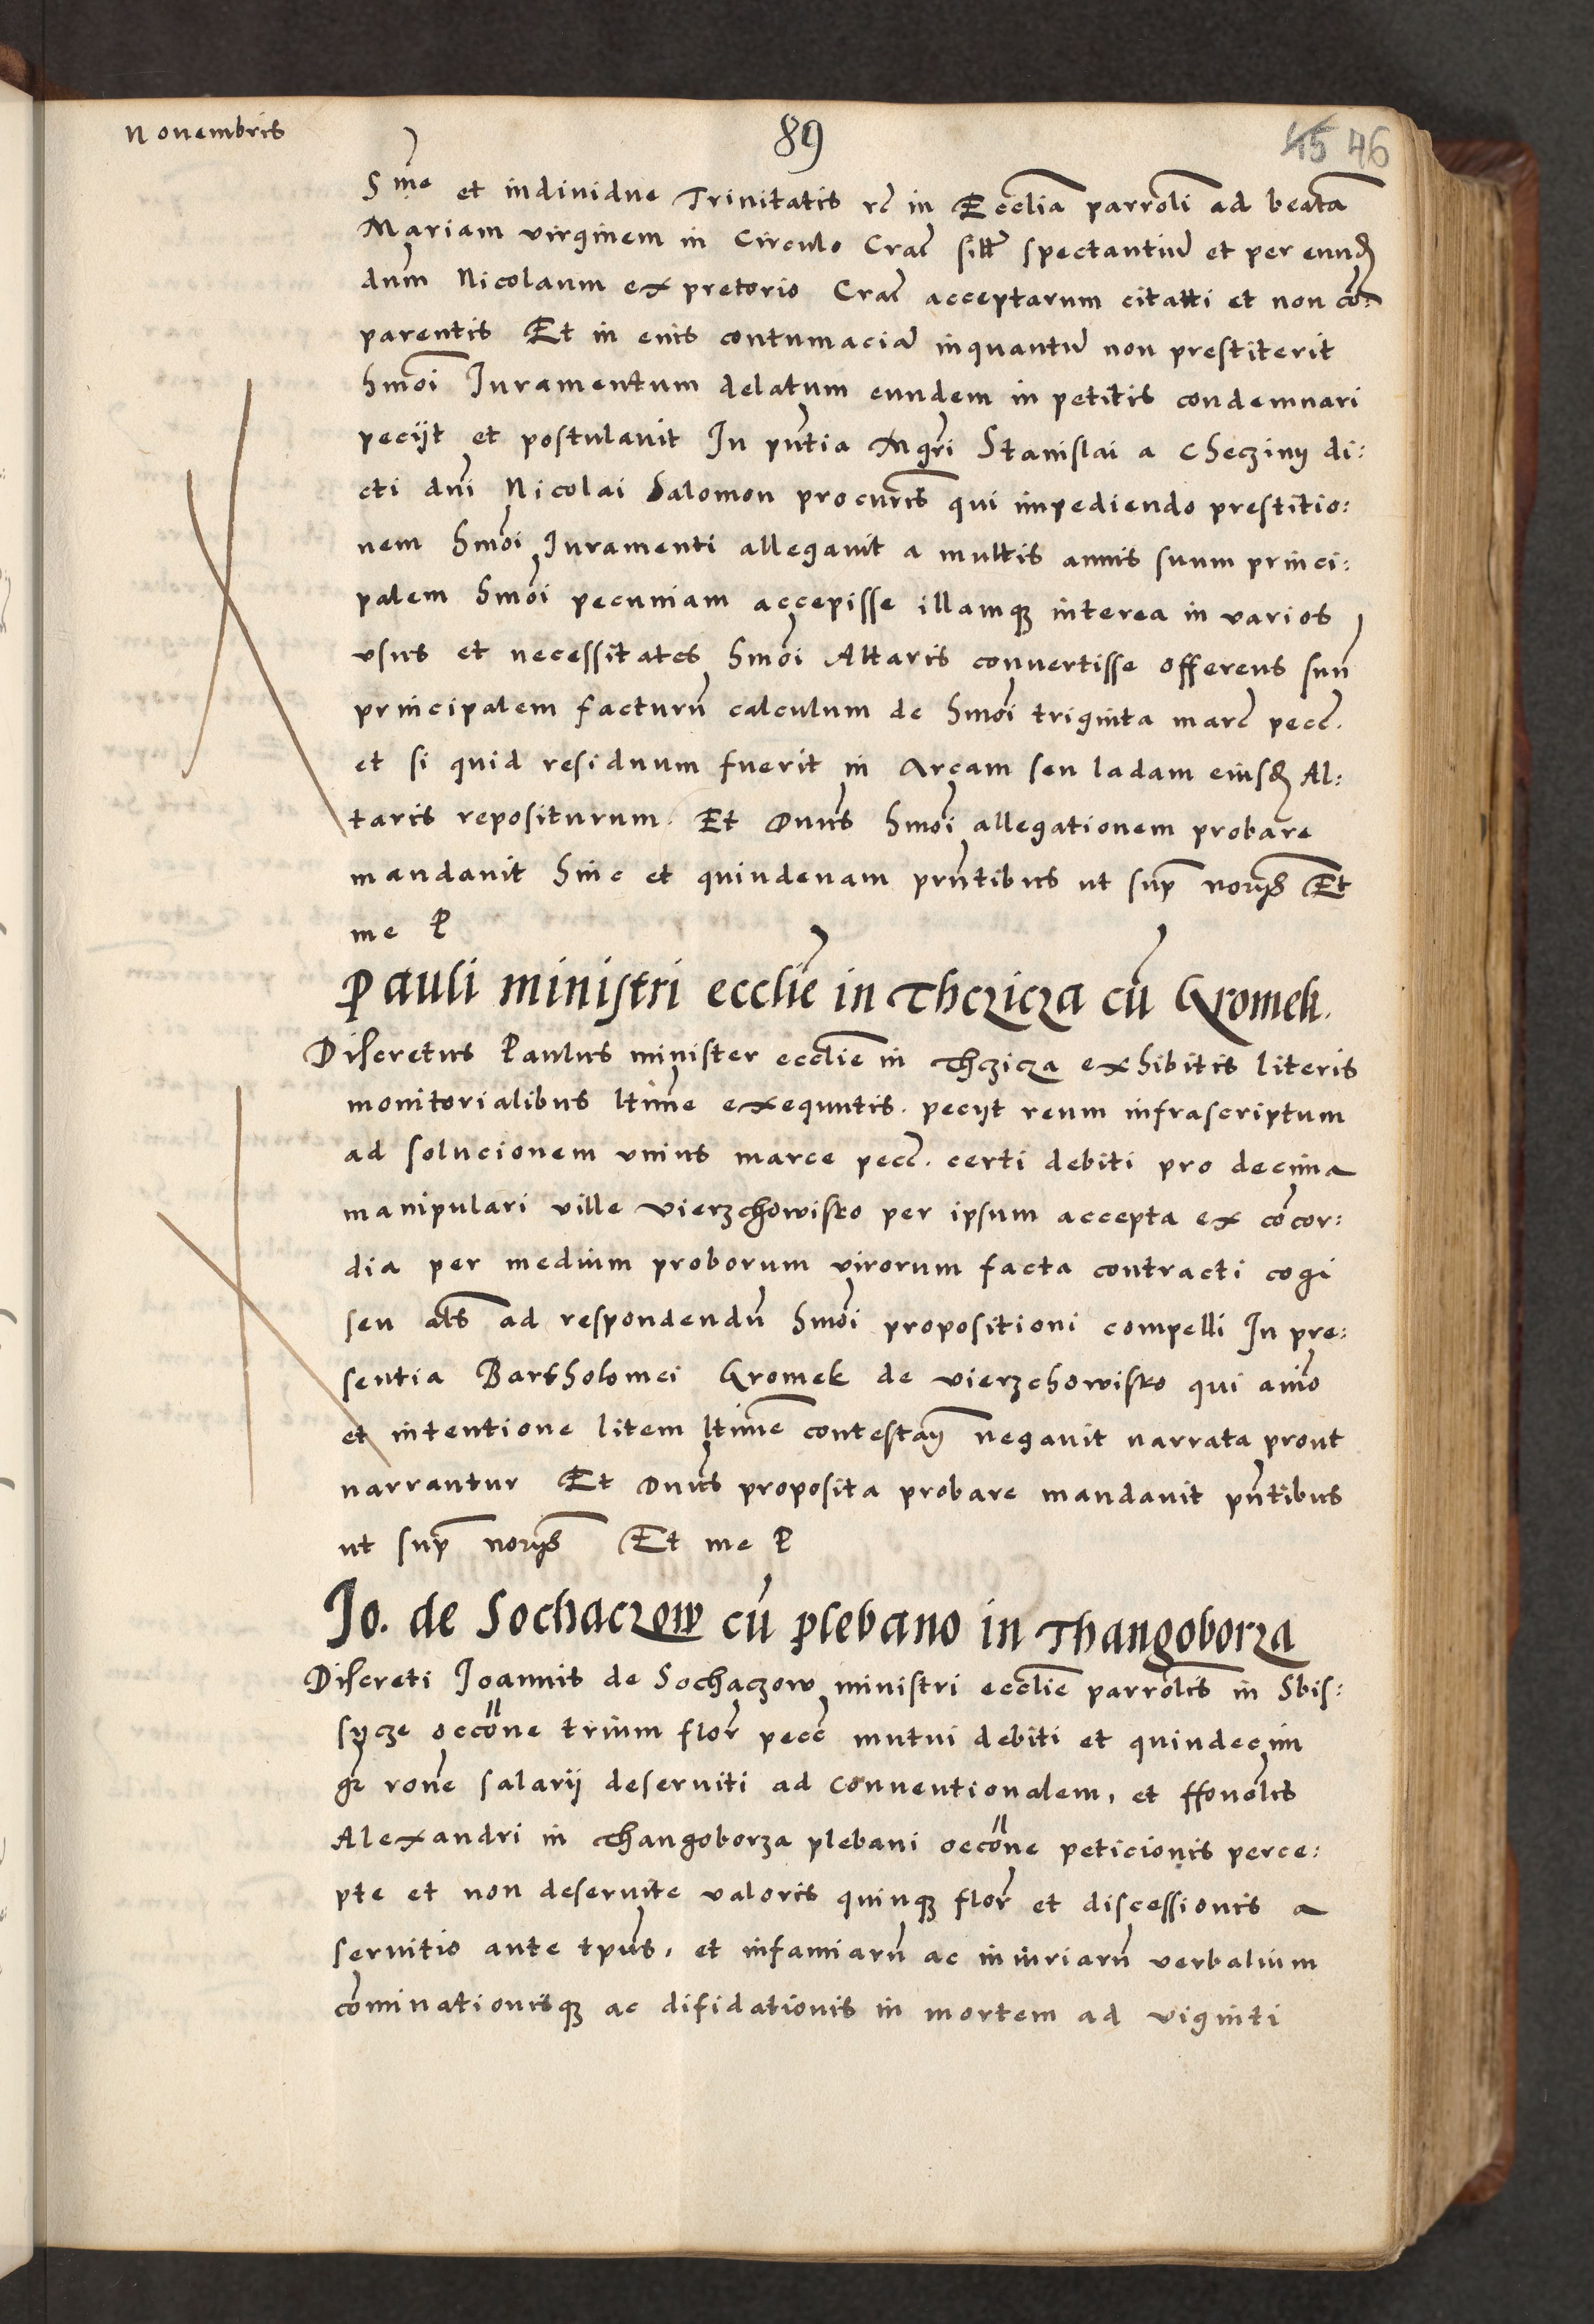 Novembris
89
45 46
Sme et individue Trinitatis rc in Ecclia parroli ad beata
Mariam virginem in Circulo Crac sillr spectantiu et per eund
dum Nicolaum ex pretorio Crac acceptarum citati et non co:
parentis Et in eius contumacia inquantu non prestiterit
hmoi Juramentum delatum eundem in petitis condemnari
pecijt et postulavit In pntia Mgri Stanislai a Checziny di:
cti dni Nicolai Salomon procuris qui impediendo prestitio:
nem hmoi Juramenti allegavit a multis annis suum princi:
palem hmoi pecuniam accepisse illamq interea in varios
usus et necessitates hmoi Altaris convertisse offerens suu
principalem facturu calculum de hmoi triginta marc pecc.
et si quid residuum fuerit in Arcam seu ladam eiusd Al:
taris repositurum. Et Dnus hmoi allegationem probare
mandavit hinc et quindenam prntibus ut sup norys Et
me P
Pauli ministri ecclie in Thczicza cu Gromek.
Discretus Paulus minister ecclie in Thczicza exhibitis literis
monitorialibus ltime exequutis. pecyt reum infrascriptum
ad solucionem unius marce pecc. certi debiti pro decima
manipulari ville vierzchowisko per ipsum accepta ex cocor:
dia per medium proborum virorum facta contracti cogi
seu als ad respondendu hmoi propositioni compelli In pre:
sentia Bartholomei Gromek de vierzchowisko qui aimo
et intentione litem ltime contestay negavit narrata prout
narrantur Et Dnus proposita probare mandavit pntibus
ut sup norys Et me P
Jo. de Sochaczow cu plebano in Thangoborza
Discreti Joannis de Sochaczow ministri ecclie parrolis in Sbis:
sycze occone trium flor pecc mutui debiti et quindecim
gr rone salarij deserviti ad conventionalem, et ffonolis
Alexandri in Thangoborza plebani occone peticionis perce:
pte et non deservite valoris quinq flor et discessionis a
servitio ante tpus, et infamiaru ac iniuriaru verbalium
cominationisq ac difidationis in mortem ad viginti